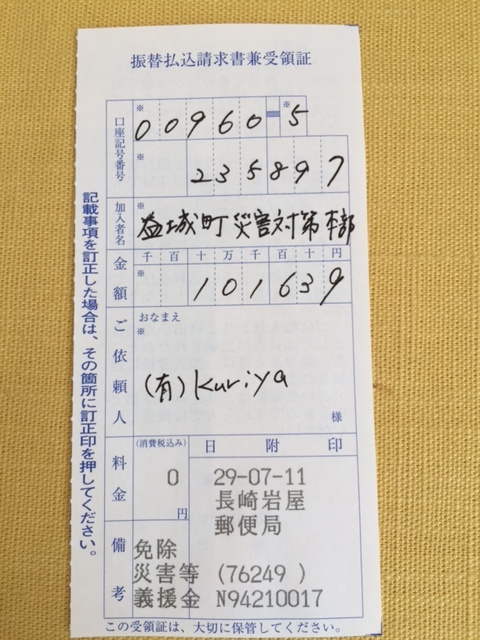 振替払込請求書兼受領証
口座記号番号
※ ※
00960-5
※
235897
加入者名
※
益城町災害対策本部
金額
千百十万千百十円
101639
ご依頼人
おなまえ
※
(有)Kuriya
様
料金
(消費税込み)
0
円
日附印
29-07-11
長崎岩屋
郵便局
備考
免除
災害等 (76249 )
義援金 N94210017
記載事項を訂正した場合は、その箇所に訂正印を押してください。
この受領証は、大切に保管してください。